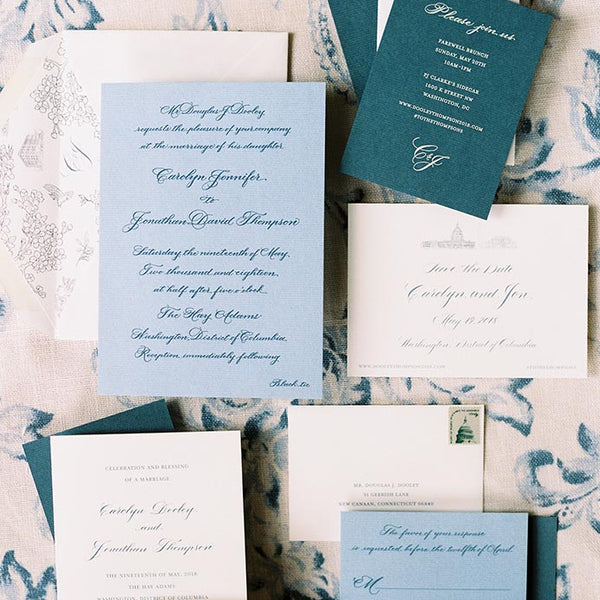 Mr. Douglas J. Dooley
requests the pleasure of your company
at the marriage of his daughter
Carolyn Jennifer
to
Jonathan David Thompson
Saturday, the nineteenth of May,
Two thousand and eighteen,
at half after five o'clock
The Hay Adams
Washington, District of Columbia
Reception immediately following
Black tie
Please join us
FAREWELL BRUNCH
SUNDAY, MAY 20TH
10AM-1PM
PJ CLARKE'S SIDECAR
1600 K STREET NW
WASHINGTON, DC
WWW.DOOLEYTHOMPSON2018.COM
#TOTHEYHOMPSONS
C&J
Save the Date
Carolyn and Jon
May 19, 2018
Washington, District of Columbia
WWW.DOOLEYTHOMPSON2018.COM
CELEBRATION AND BLESSING
OF A MARRIAGE
Carolyn Dooley
and
Jonathan Thompson
THE NINETEENTH OF MAY, 2018
THE HAY ADAMS
WASHINGTON, DISTRICT OF COLUMBIA
MR. DOUGLAS J. DOOLEY
51 GERRISH LANE
NEW CANAAN, CONNECTICUT 06840
The favor of your response
is requested before the twelfth of April
M